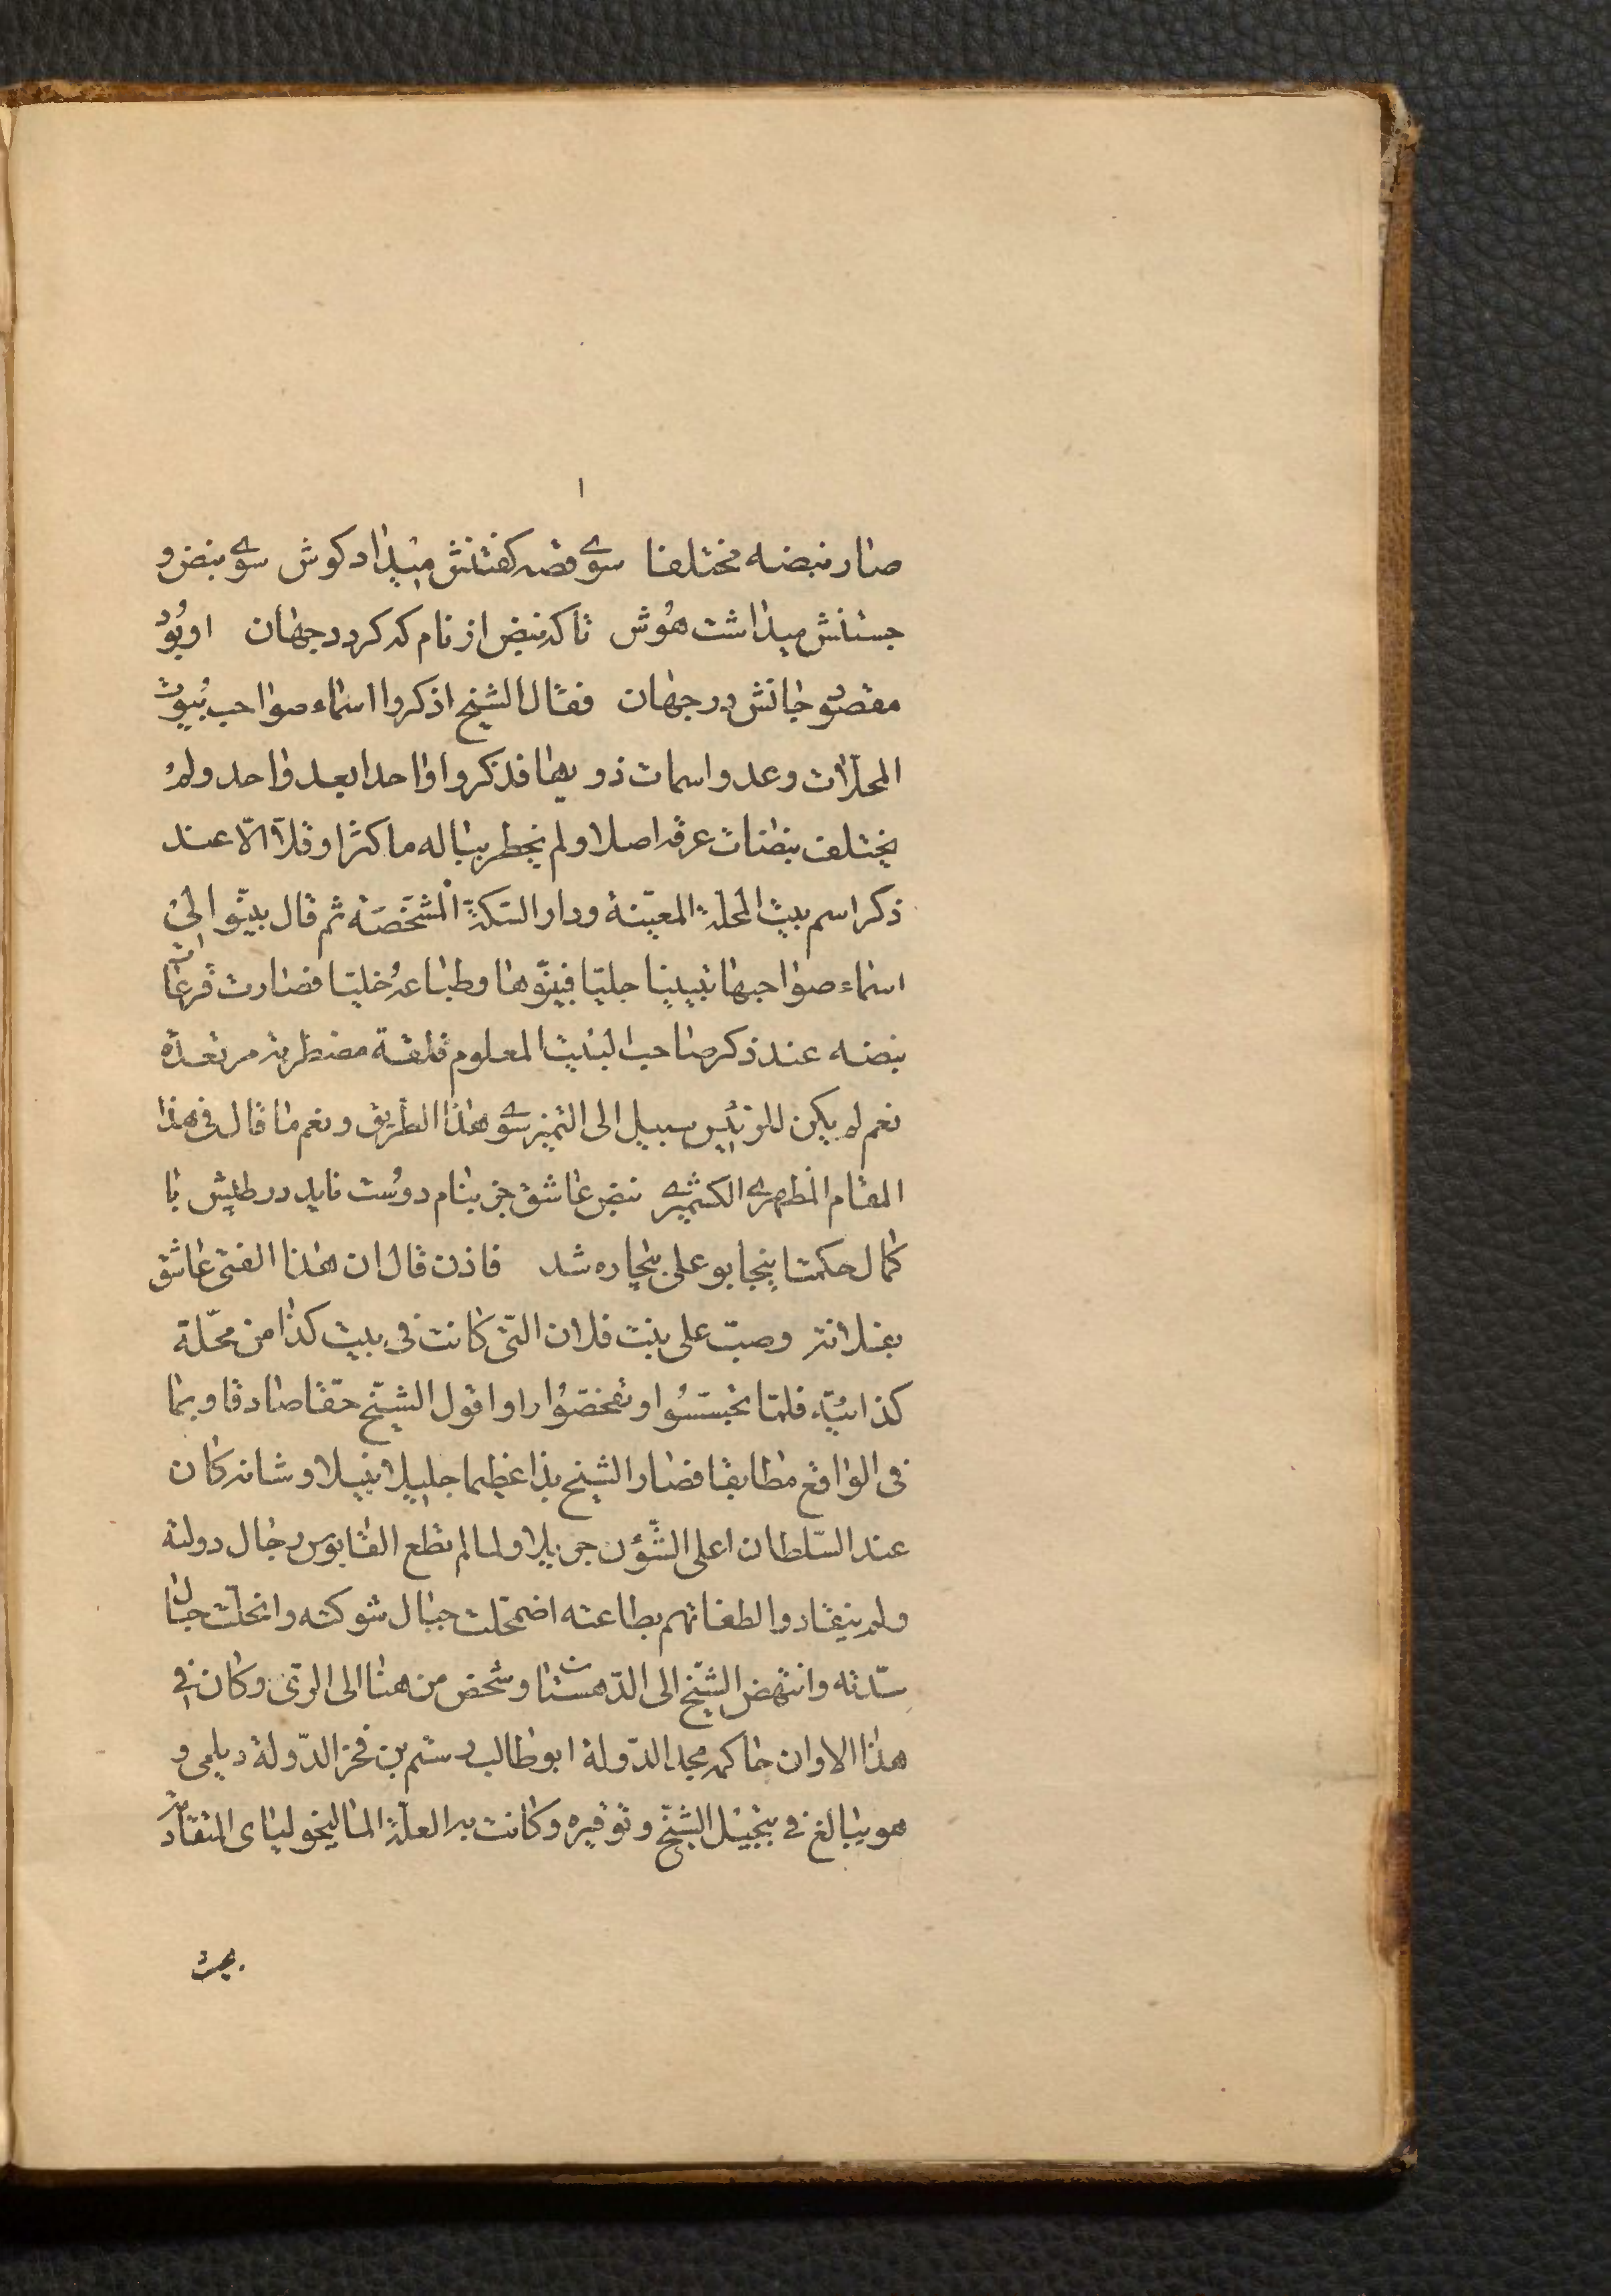 ١
صار نبضه مختلفا سوے قصه كفتنش میداد كوش سوے نبض و
جستنش میداشت هُوش تا كه نبض از نام كه كردد جهان او بُوَد
مقصُودِ جانش در جهان فقال الشيخ اذكروا اسماء صواحب بُيوت
المحلّات وعدوا سمات ذويها فذكروا واحدا بعد واحد ولم
يختلف نبضات عرقه اصلا ولم يخطر بباله ما كثرا و قلّا الّا عند
ذكر اسم بيت المحلّة المعيّنة ودار السّكّة المُشَخّصَة ثم قال بيّنوا الىّ
اسماء صواحبها تبيينا جليّا فبيّنوها وطباعهُ خليّا فصارت قرعات
نبضه عند ذكر صاحب البَيت المعلوم قلقة مضطربة مرتعدة
نعم لم يكن للرئيس سبيل الى التميز سوے هذا الطريق ونعم ما قال فى هذا
المقام المظهرے الكشميرے نبض عاشق جز بنام دوُست نايد در طپش با
كمال حكمت اينجا بو على بيچاره شد فاذن قال ان هذا الفتى عاشق
بفلانة وصبّ على بنت فلان الّتى كانت فى بيت كذا من محّلة
كذائيّة فلمّا تجسّسُوا و تفحّصُوا راوا قول الشّيخ حقّا صادقا وبما
فى الواقع مطابقا فصار الشيخ بذا عظيما جليلا نبيلا و شانه كان
عند السّلطان اعلى الشّؤن جزيلا ولما لم تطع القابوس رجال دولته
ولم ينقادوا لطغاتهم بطاعته اضمحّلت جبال شوكته وانحلّت حبال
سدّته وانتهض الشّيخ الى الدّهستان وشخص من هنا الى الرّى وكان فى
هذا الاوان حاكمه مجد الدّولة ابو طالب رستم بن فخر الدّولة ديلمى و
هو يبالغ فى تبجيل الشّيخ و توقيره وكانت به العلّة الماليخولياى المتقادمة
بحيث